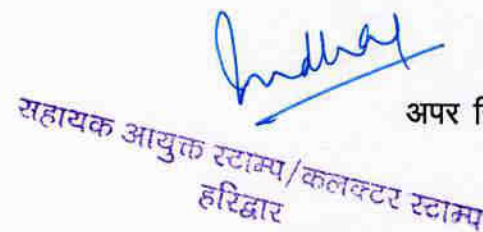 अपर
सहायक आयुक्त स्टाम्प/कलक्टर स्टाम्प
हरिद्वार